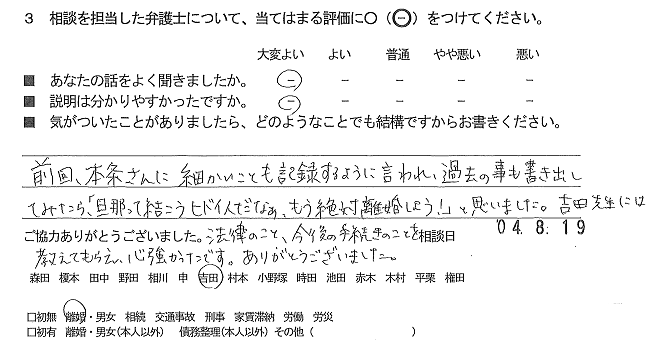 3 相談を担当した弁護士について、当てはまる評価に○（⊖）をつけてください。
大変よい よい 普通 やや悪い 悪い
■ あなたの話をよく聞きましたか。 － － － － －
■ 説明は分かりやすかったですか。 － － － － －
■ 気がついたことがありましたら、どのようなことでも結構ですからお書きください。
前回、本条さんに細かいことも記録するように言われ、過去の事も書き出し
てみたら、「旦那って結こうヒドイ人だなぁ、もう絶対離婚しよう!」と思いました。吉田先生には
ご協力ありがとうございました。法律のこと、今後の手続きのことを 相談日 '04.8.19
教えてもらえ、心強かったです。ありがとうございました。
森田 榎本 田中 野田 相川 申 吉田 村本 小野塚 時田 池田 赤木 木村 平栗 権田
□初無 離婚・男女 相続 交通事故 刑事 家賃滞納 労働 労災
□初有 離婚・男女(本人以外) 債務整理(本人以外) その他 ( )